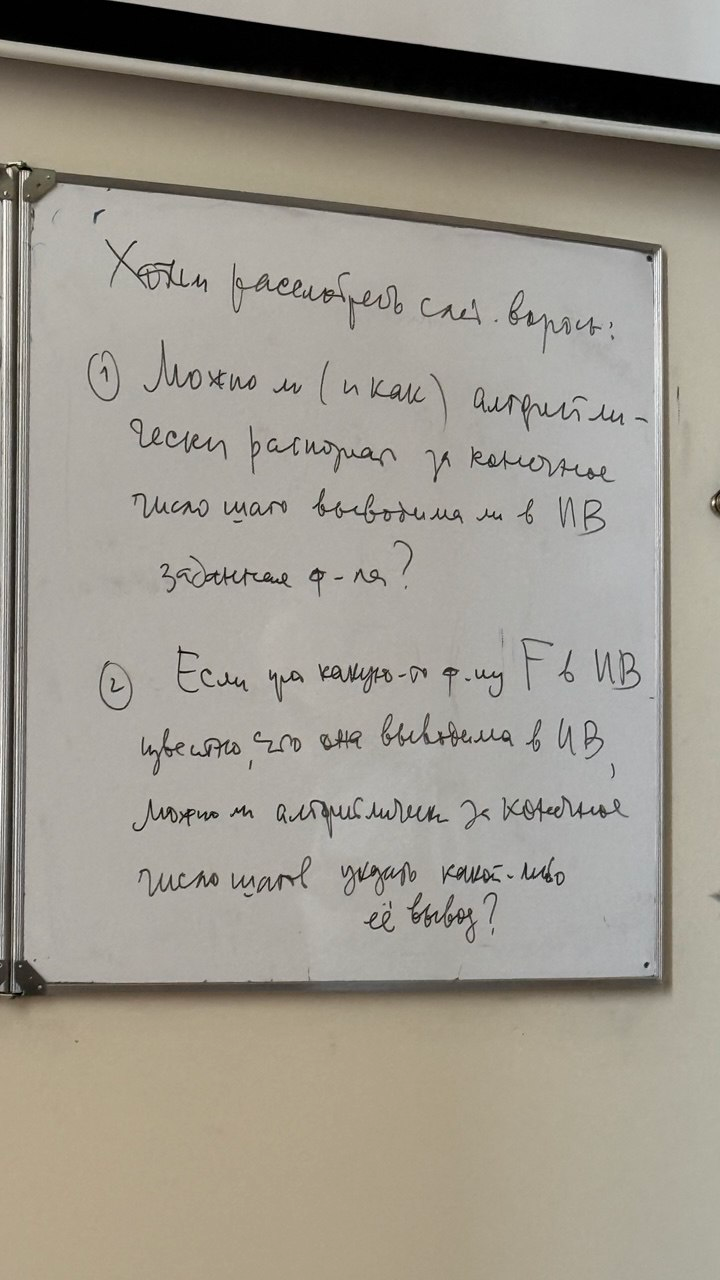 Хотим рассмотреть след. вопросы:
① Можно ли (и как) алгоритми-
чески распознать за конечное
число шагов выводима ли в ИВ
заданная ф-ла?
② Если про какую-то ф-лу F в ИВ
известно, что она выводима в ИВ,
можно ли алгоритмически за конечное
число шагов указать какой-либо
её вывод?